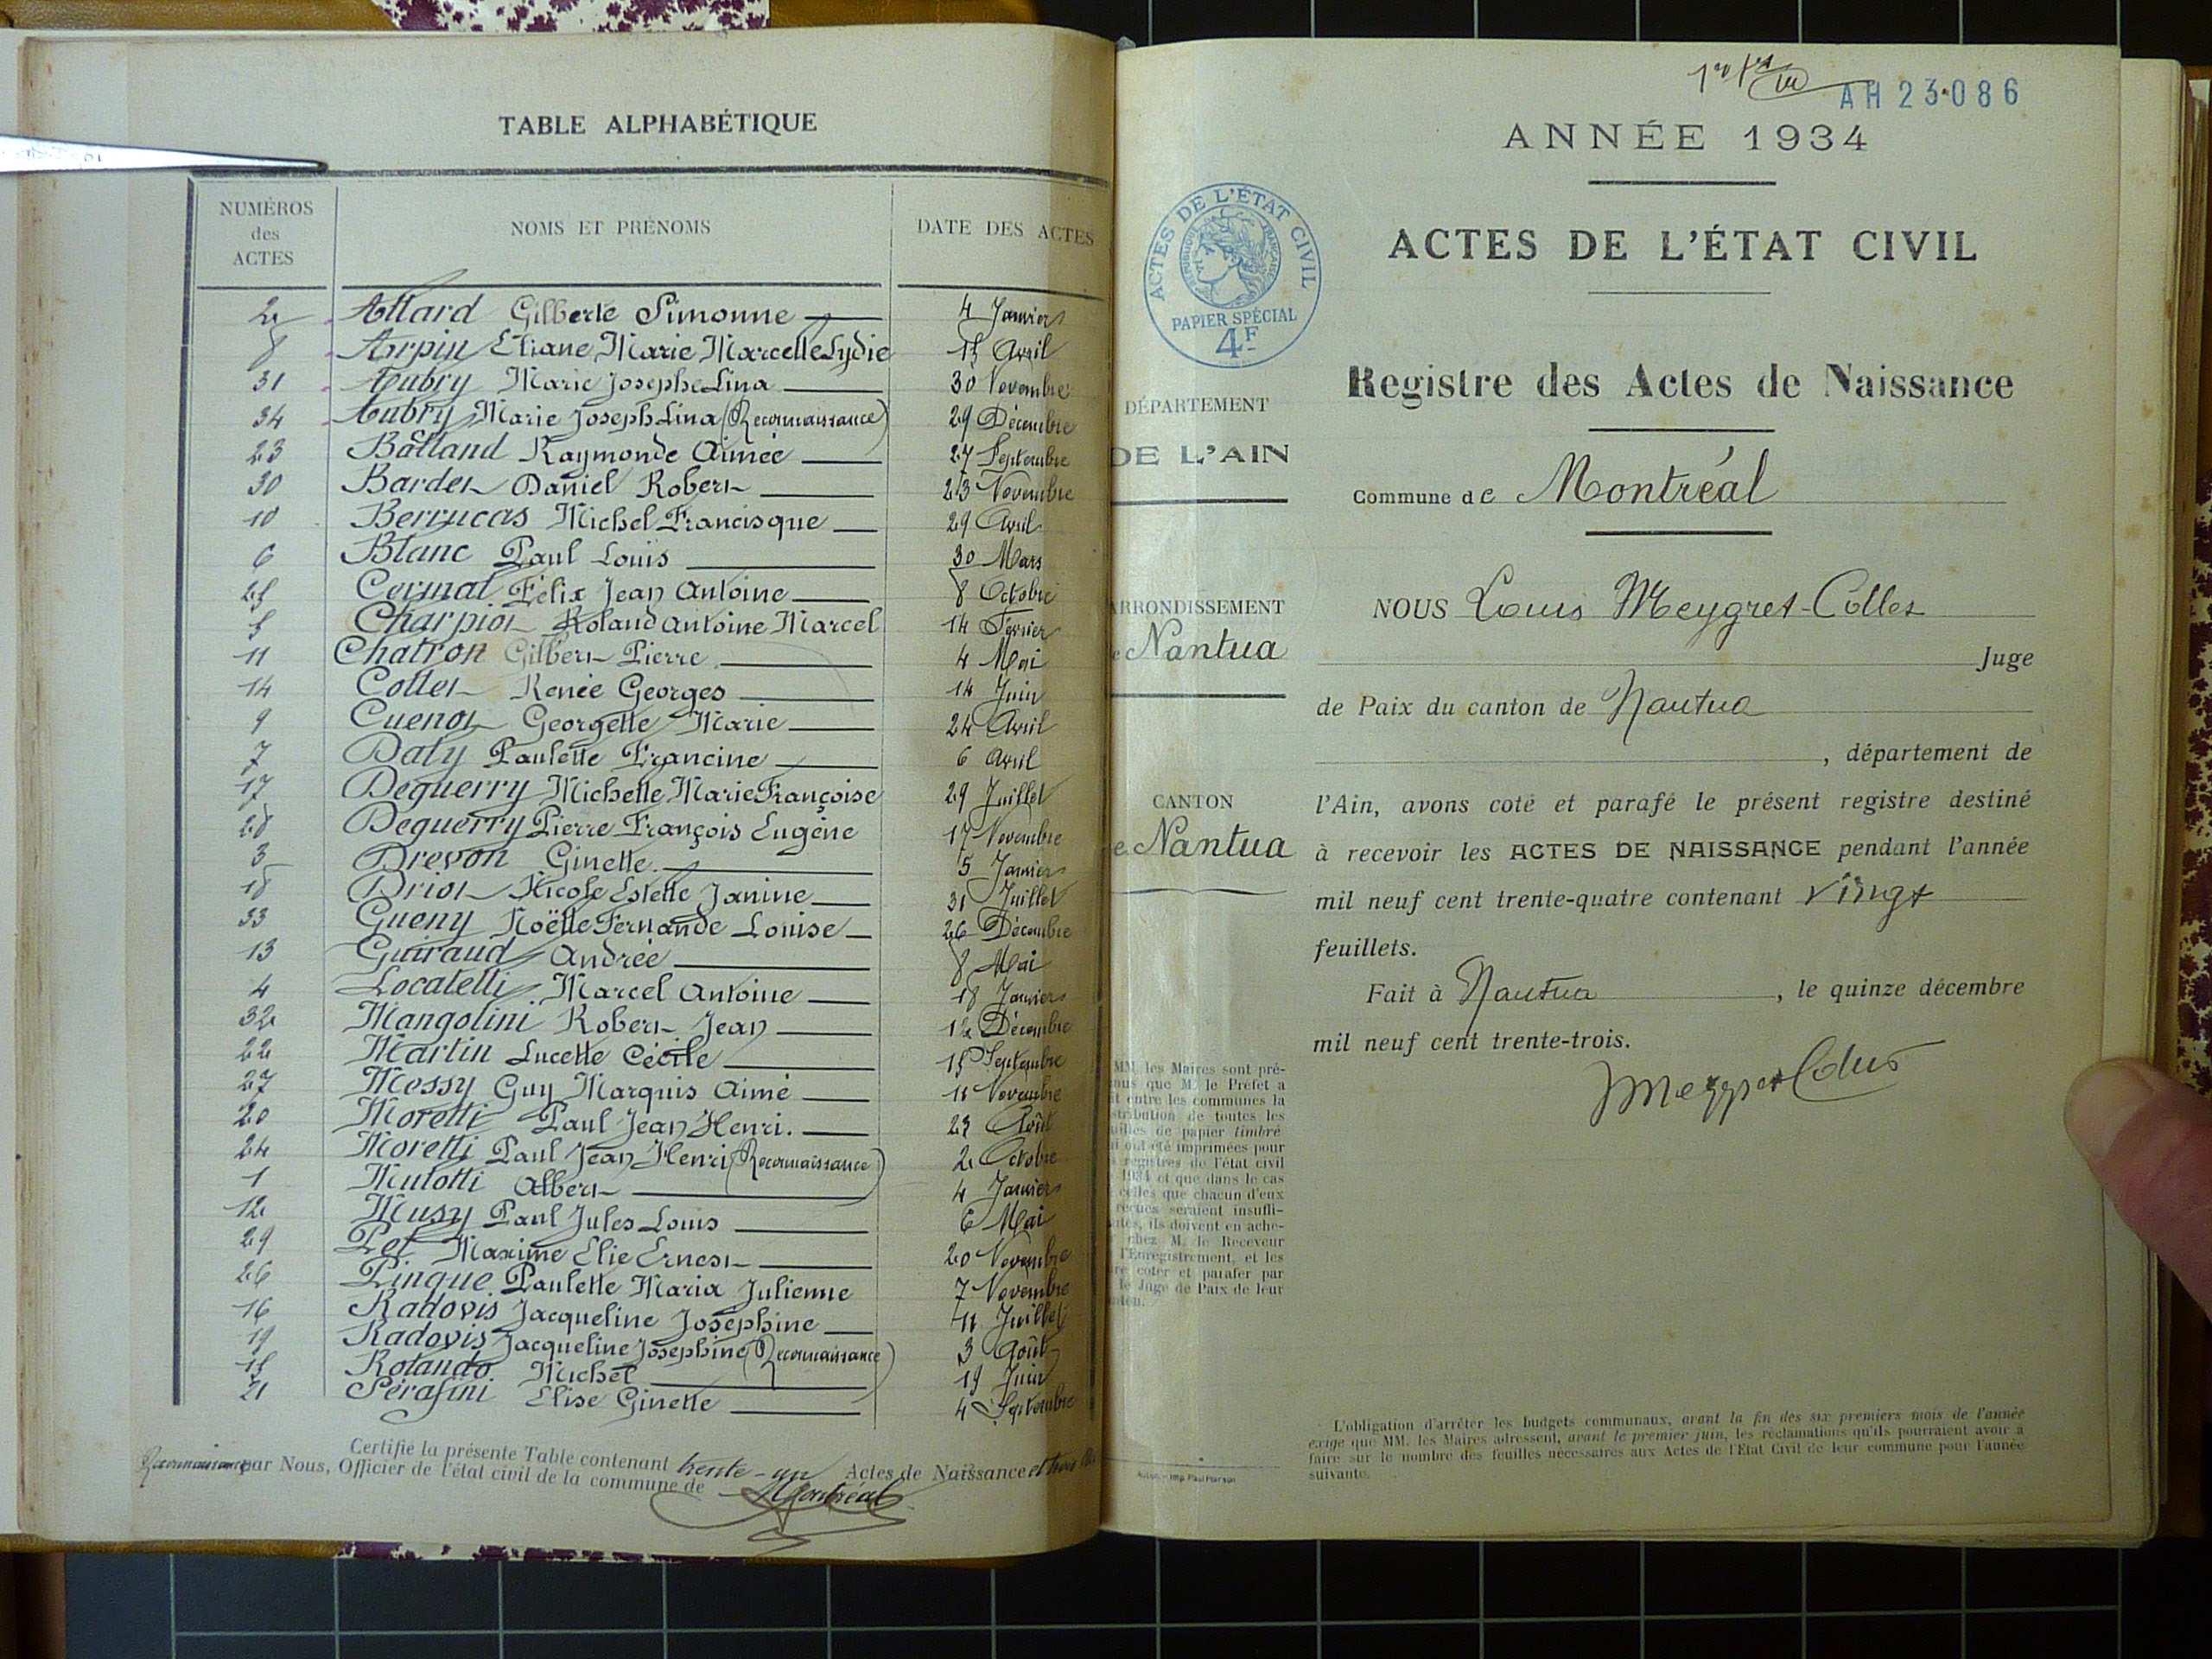 TABLE ALPHABÉTIQUE
NUMÉROS des ACTES NOMS ET PRÉNOMS DATE DES ACTES
2 Allard Gilberte Simonne 4 Janvier
8 Arpin Eliane Marie Marcelle Lydie 15 Avril
31 Aubry Marie Josephe Lina 30 Novembre
34 Aubry Marie Joseph Lina (Reconnaissance) 29 Décembre
23 Balland Raymonde Aimée 27 Septembre
30 Bardet Daniel Robert 23 Novembre
10 Berrucas Michel Francisque 29 Avril
6 Blanc Paul Louis 30 Mars
25 Cormat Félix Jean Antoine 8 Octobre
5 Charpiot Roland Antoine Marcel 14 Février
11 Chatron Gilbert Pierre 4 Mai
14 Collet Renée Georges 14 Juin
9 Cuenot Georgette Marie 24 Avril
7 Daly Paulette Francine 6 Avril
17 Deguerry Michelle Marie Françoise 29 Juillet
28 Deguerry Pierre François Eugène 17 Novembre
3 Drevon Ginette 5 Janvier
18 Driot Nicole Estelle Janine 31 Juillet
33 Gueny Noëlle Fernande Louise 26 Décembre
13 Guiraud Andrée 8 Mai
4 Locatelli Marcel Antoine 18 Janvier
32 Mangolini Robert Jean 12 Décembre
22 Martin Lucette Cécile 15 Septembre
27 Messy Guy Marquis Aimé 11 Novembre
20 Moretti Paul Jean Henri. 23 Août
24 Moretti Paul Jean Henri (Reconnaissance) 2 Octobre
1 Mulotti Albert 4 Janvier
12 Musy Paul Jules Louis 6 Mai
29 Pet Maxime Elie Ernest 20 Novembre
26 Pinque Paulette Maria Julienne 7 Novembre
16 Radovis Jacqueline Josephine 11 Juillet
19 Radovis Jacqueline Josephine (Reconnaissance) 3 Août
15 Rolando Michel 19 Juin
21 Serafini Elise Ginette 4 Septembre
Certifié la présente Table contenant trente-un Actes de Naissance et trois
Reconnaissances par Nous, Officier de l'état civil de la commune de Montréal
AH 23·086
ANNÉE 1934
ACTES DE L'ÉTAT CIVIL
RÉPUBLIQUE FRANÇAISE
PAPIER SPÉCIAL
4F
ACTES DE L'ÉTAT CIVIL
Registre des Actes de Naissance
Commune de Montréal
DÉPARTEMENT
DE L'AIN
ARRONDISSEMENT
Nantua
CANTON
Nantua
NOUS Louis Meygret-Collet
Juge
de Paix du canton de Nantua
, département de
l'Ain, avons coté et parafé le présent registre destiné
à recevoir les ACTES DE NAISSANCE pendant l'année
mil neuf cent trente-quatre contenant vingt
feuillets.
Fait à Nantua, le quinze décembre
mil neuf cent trente-trois.
MM. les Maires sont pré-
que M. le Préfet a
entre les communes la
de toutes les
de papier timbré
ont été imprimées pour
registres de l'état civil
1934 et que dans le cas
celles que chacun d'eux
seraient insuffi-
ils doivent en ache-
chez M. le Receveur
l'Enregistrement, et les
coter et parafer par
le Juge de Paix de leur
L'obligation d'arrêter les budgets communaux, avant la fin des six premiers mois de l'année
exige que MM. les Maires adressent, avant le premier juin, les réclamations qu'ils pourraient avoir à
faire sur le nombre des feuilles nécessaires aux Actes de l'Etat Civil de leur commune pour l'année
suivante.